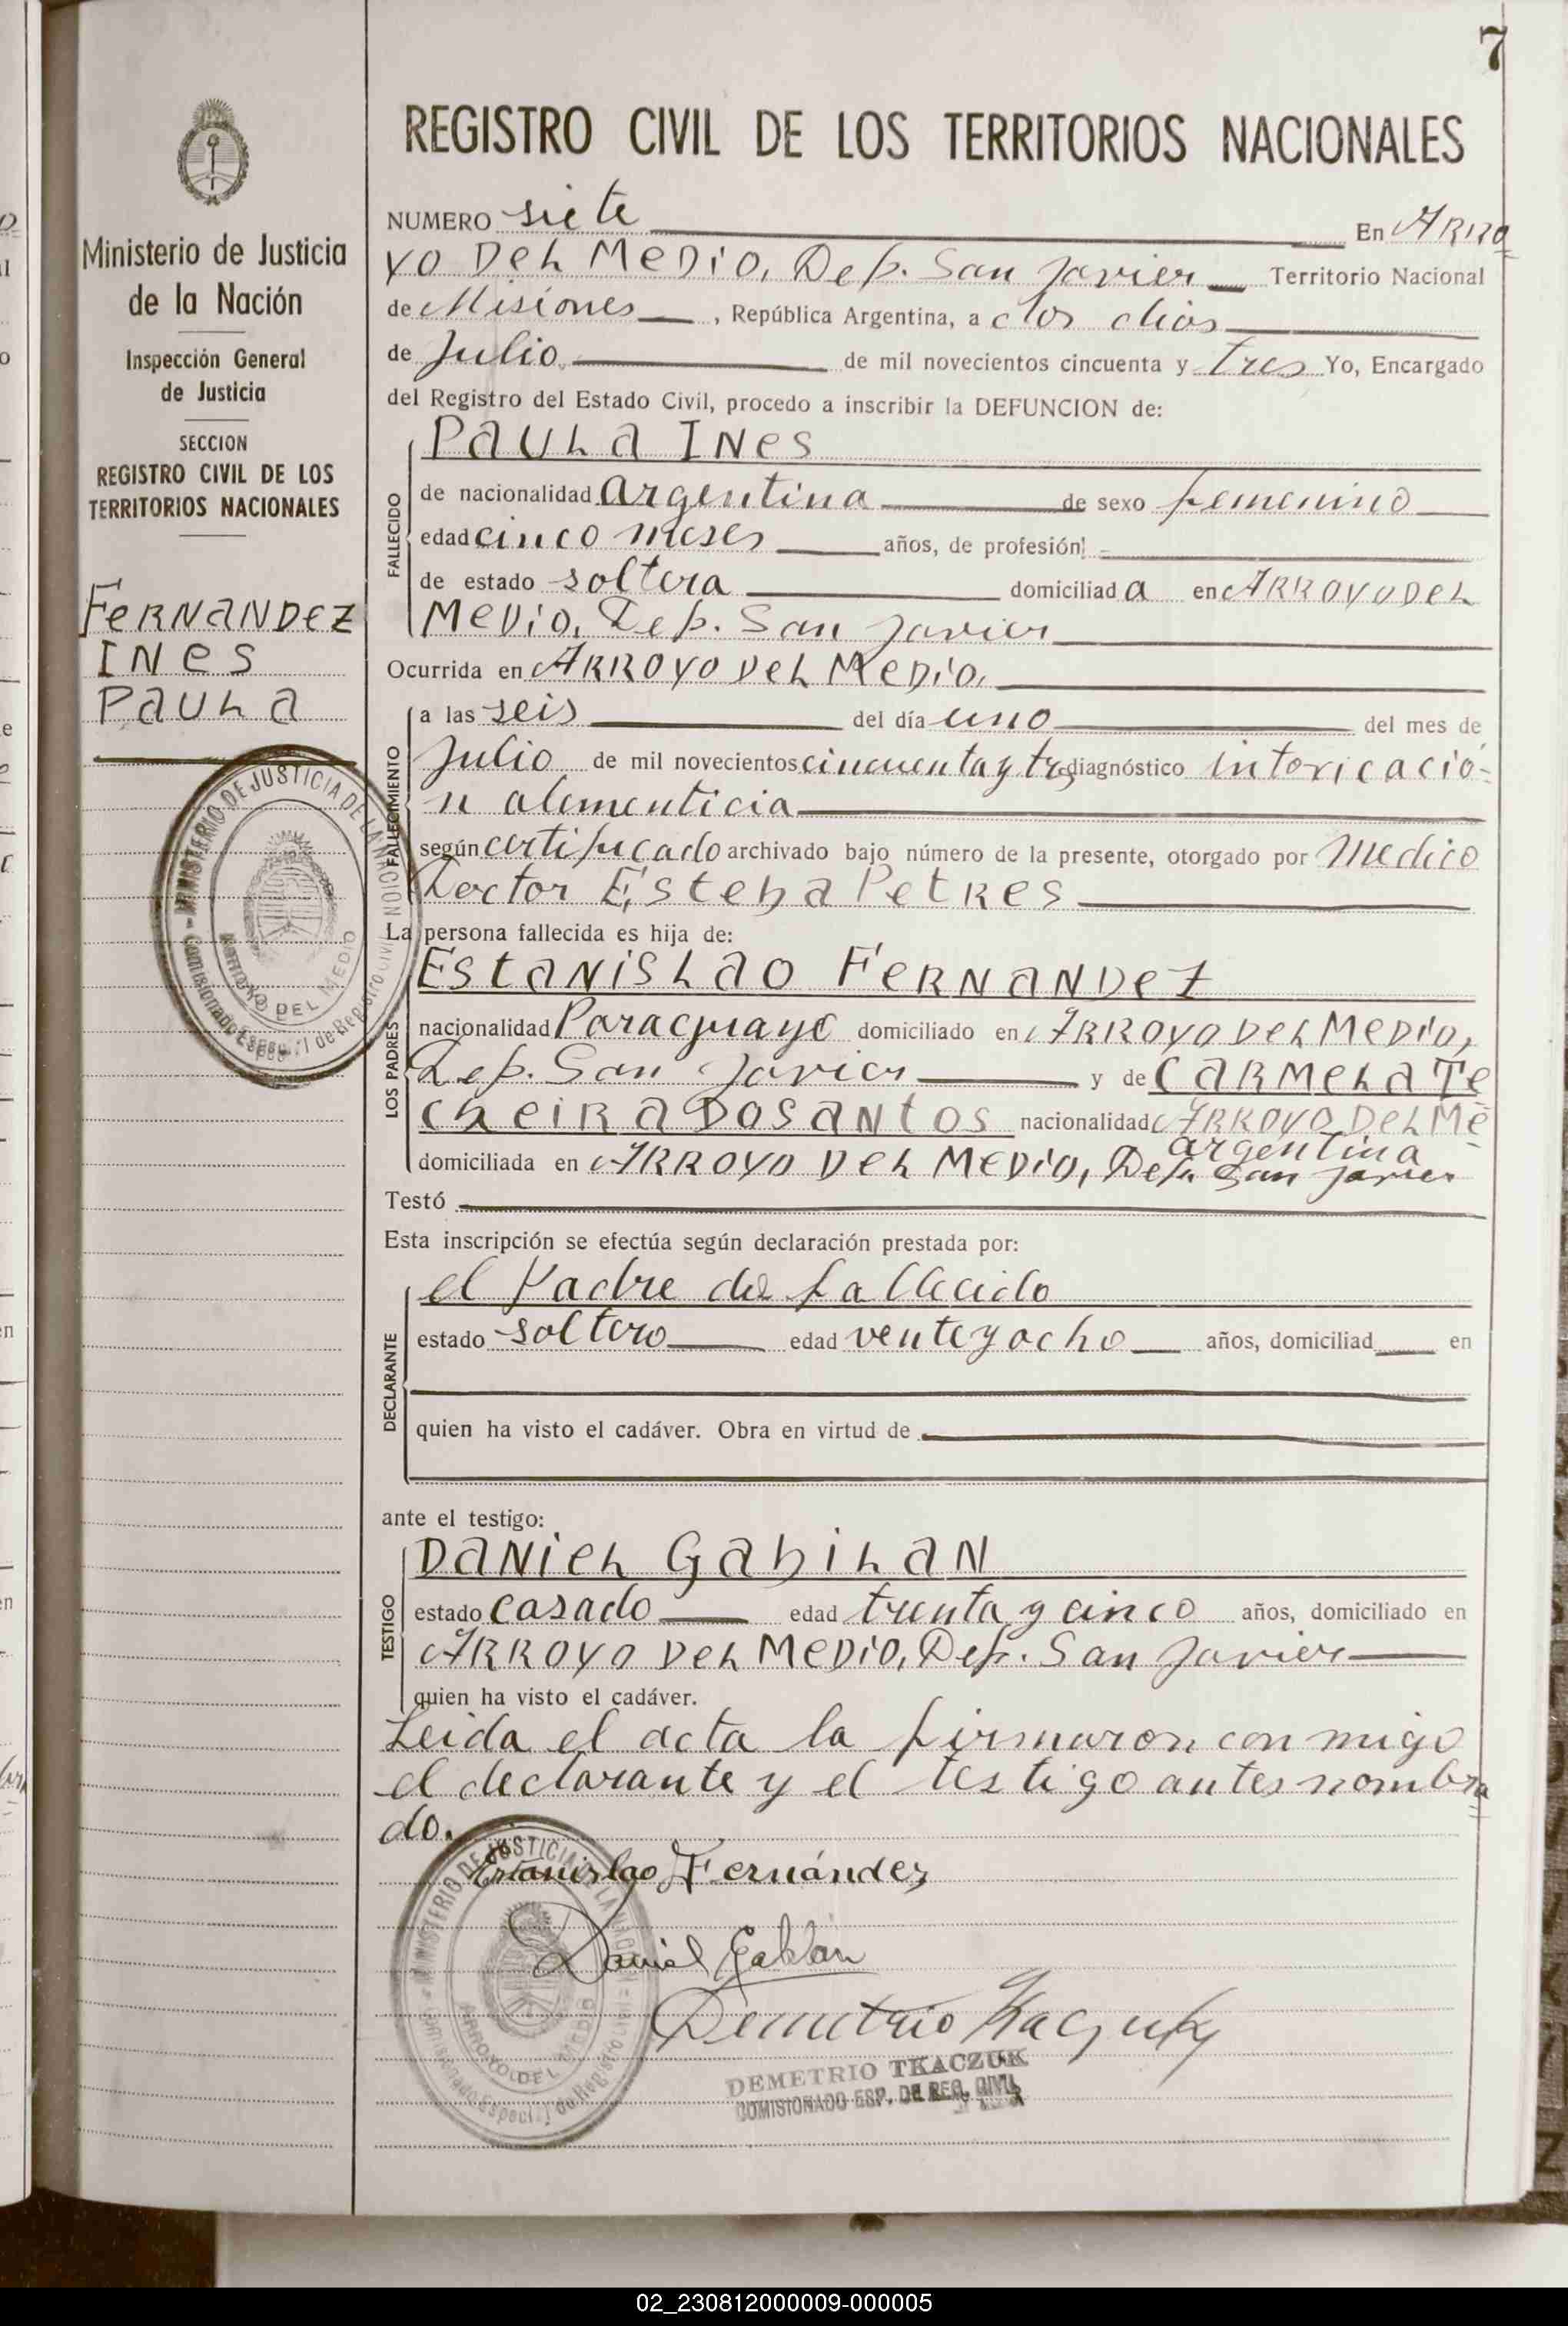 7
REGISTRO CIVIL DE LOS TERRITORIOS NACIONALES
Ministerio de Justicia
de la Nación
Inspección General
de Justicia
SECCION
REGISTRO CIVIL DE LOS
TERRITORIOS NACIONALES
FERNANDEZ
INES
PAULA
MINISTERIO DE JUSTICIA DE LA NACION
ARROYO DEL MEDIO
Comisionado Especial de Registro Civil
NUMERO siete En ARRO
YO DEL MEDIO, Dep. San Javier Territorio Nacional
de Misiones, República Argentina, a dos dias
de Julio de mil novecientos cincuenta y tres Yo, Encargado
del Registro del Estado Civil, procedo a inscribir la DEFUNCION de:
FALLECIDO
PAULA INES
de nacionalidad argentina de sexo femenino
edad cinco meses años, de profesión
de estado soltera domiciliada en ARROYO DEL
MEDIO, Dep. San Javier
Ocurrida en ARROYO DEL MEDIO,
FALLECIMIENTO
a las seis del día uno del mes de
Julio de mil novecientos cincuenta y tres diagnóstico intoxicació-
n alementicia
según certificado archivado bajo número de la presente, otorgado por Medico
Doctor ESTEBA PETRES
La persona fallecida es hija de:
LOS PADRES
ESTANISLAO FERNANDEZ
nacionalidad Paraguayo domiciliado en ARROYO DEL MEDIO,
Dep. San Javier y de CARMELA TE
CHEIRA DOSANTOS nacionalidad ARROYO DEL ME
argentina
domiciliada en ARROYO DEL MEDIO, Dep. San Javier
Testó
Esta inscripción se efectúa según declaración prestada por:
DECLARANTE
el Padre del fallecido
estado soltero edad venteyocho años, domiciliad en
quien ha visto el cadáver. Obra en virtud de
ante el testigo:
TESTIGO
DANIEL GABILAN
estado casado edad trenta y cinco años, domiciliado en
ARROYO DEL MEDIO, Dep. San Javier
quien ha visto el cadáver.
Leida el acta la firmaron con migo
el declarante y el testigo antes nombra
do.
Estanislao Fernández
Daniel
Demetrio
MINISTERIO DE JUSTICIA DE LA NACION
ARROYO DEL MEDIO
Comisionado Especial de Registro Civil
DEMETRIO TKACZUK
COMISIONADO ESP. DE REG. CIVIL
02_230812000009-000005